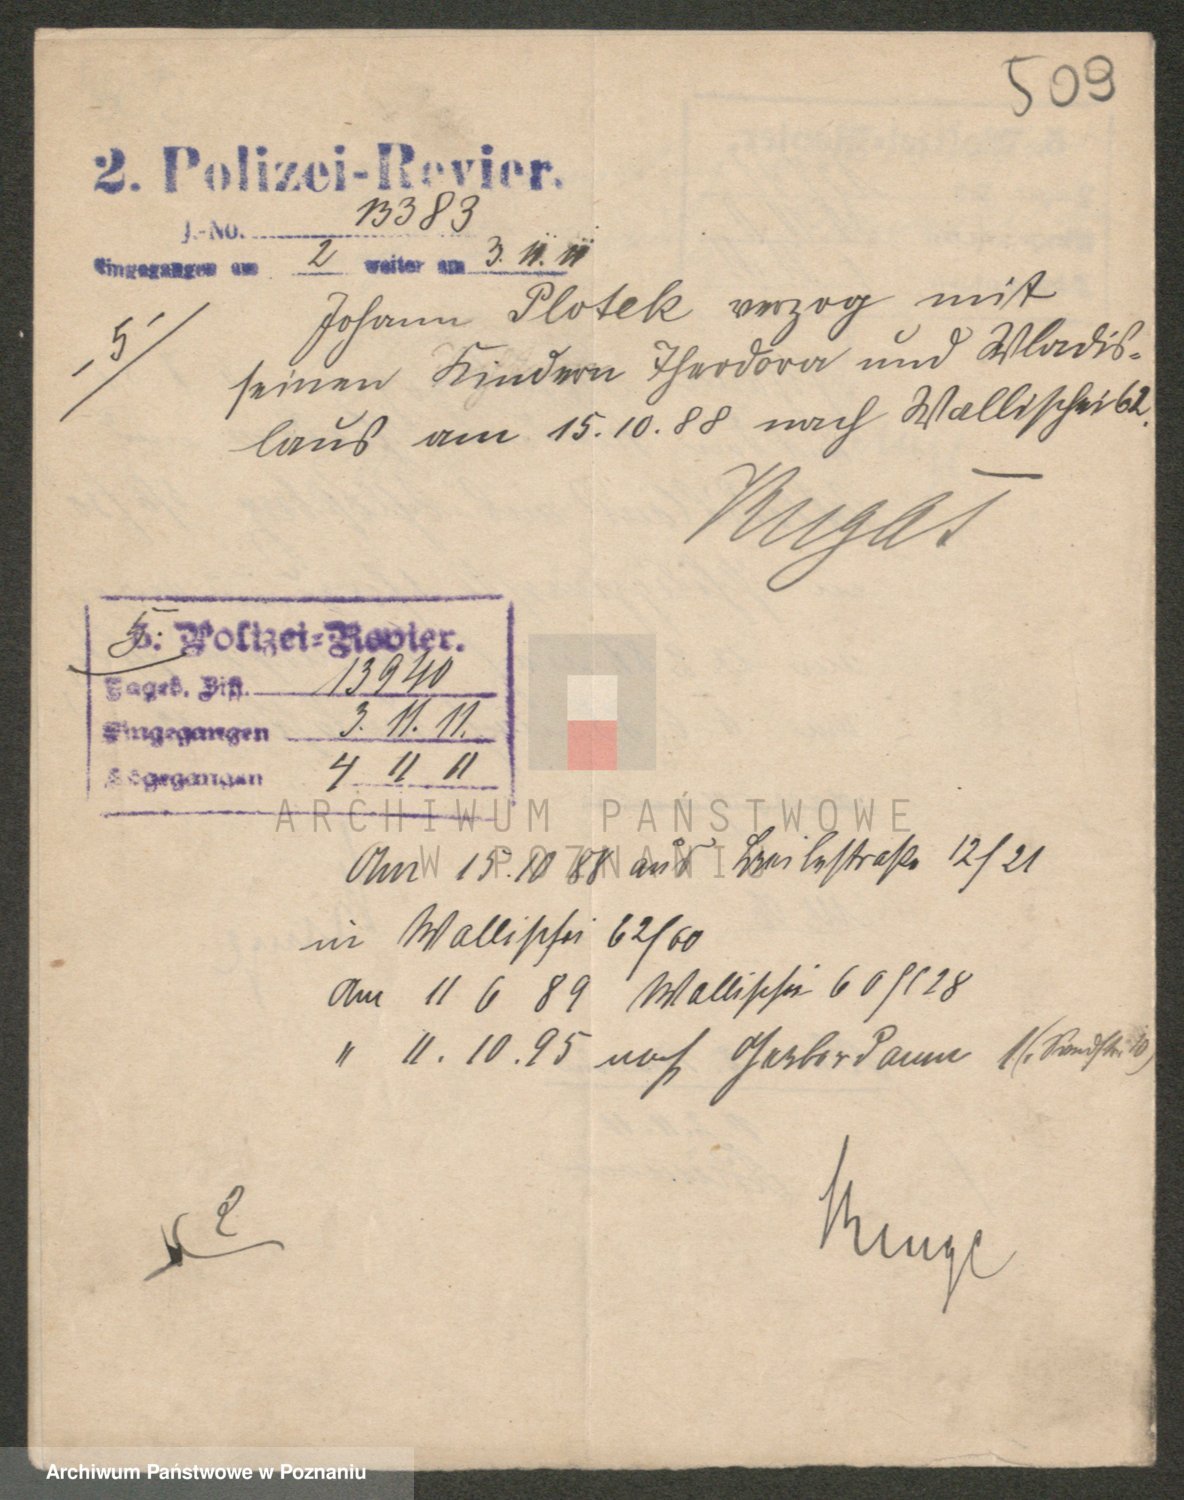 509
2. Polizei-Revier.
J.-No. 13383
Eingegangen am 2 weiter am 3. 11. 11
5
Johann Plotek verzog mit
seinen Kindern Theodora und Wladis-
laus am 15.10.88 nach Wallischei 62.
5. Polizei-Revier.
Tageb. Nr. 13940
Eingegangen 3. 11. 11.
Abgegangen 4 11 11
ARCHIWUM PAŃSTWOWE
W POZNANIU
Am 15.10 88 aus Breitestraße 12/21
in Wallischei 62/60
Am 11 6 89 Wallischei 60/128
" 11.10.95 nach Gerberdamm 1 (. Sandstr 10)
Runge
2
Archiwum Państwowe w Poznaniu